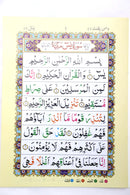 بِسْمِ اللهِ الرَّحْمٰنِ الرَّحِيْمِ
يٰسٓ وَالْقُرْاٰنِ الْحَكِيْمِ
اِنَّكَ لَمِنَ الْمُرْسَلِيْنَ عَلٰى
صِرَاطٍ مُّسْتَقِيْمٍ تَنْزِيْلَ
الْعَزِيْزِ الرَّحِيْمِ لِتُنْذِرَ
قَوْمًا مَّآ اُنْذِرَ اٰبَآؤُهُمْ
فَهُمْ غٰفِلُوْنَ لَقَدْ حَقَّ الْقَوْلُ
عَلٰٓى اَكْثَرِهِمْ فَهُمْ لَا يُؤْمِنُوْنَ
اِنَّا جَعَلْنَا فِيْٓ اَعْنَاقِهِمْ اَغْلٰلًا فَهِيَ